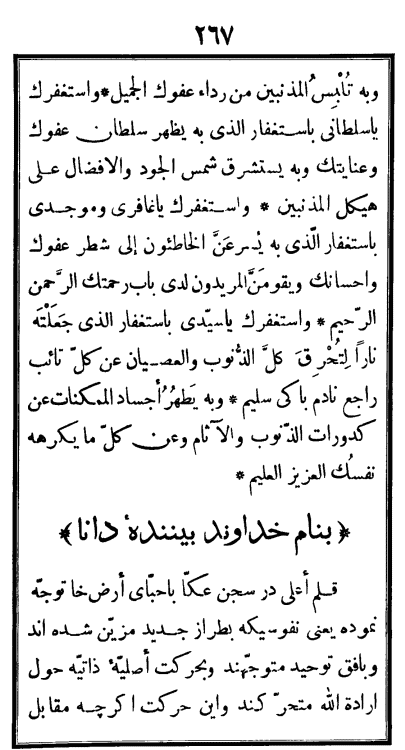 ٢٦٧
وبه تُلْبِسُ المذنبين من رداء عفوك الجميل * واستغفرك
ياسلطانى باستغفار الذى به يظهر سلطان عفوك
وعنايتك وبه يستشرق شمس الجود والافضال على
هيكل المذنبين * واستغفرك ياغافرى وموجدى
باستغفار الّذى به يُسرعَنَّ الخاطئون إلى شطر عفوك
واحسانك ويقومَنَّ المريدون لدى باب رحمتك الرَّحمن
الرّحيم * واستغفرك ياسيّدى باستغفار الذى جَعَلْتَه
ناراً لِتُحْرِقَ كلَّ الذُّنوب والعصيان عن كلّ تائب
راجع نادم باكى سليم * وبه يَطهُرُ أجساد الممكنات عن
كدورات الذّنوب والآثام وعن كلّ ما يكرهه
نفسُك العزيز العليم *
﴿ بنام خداوند بينندهٔ دانا ﴾
قلم أعلى در سجن عكّا باحبّاى أرض خا توجّه
نموده يعنى نفوسيكه بطراز جديد مزيّن شده اند
وبافق توحيد متوجّهند وبحركت أصليّهٔ ذاتيّه حول
ارادة الله متحرّكند واين حركت اكرچه مقابل